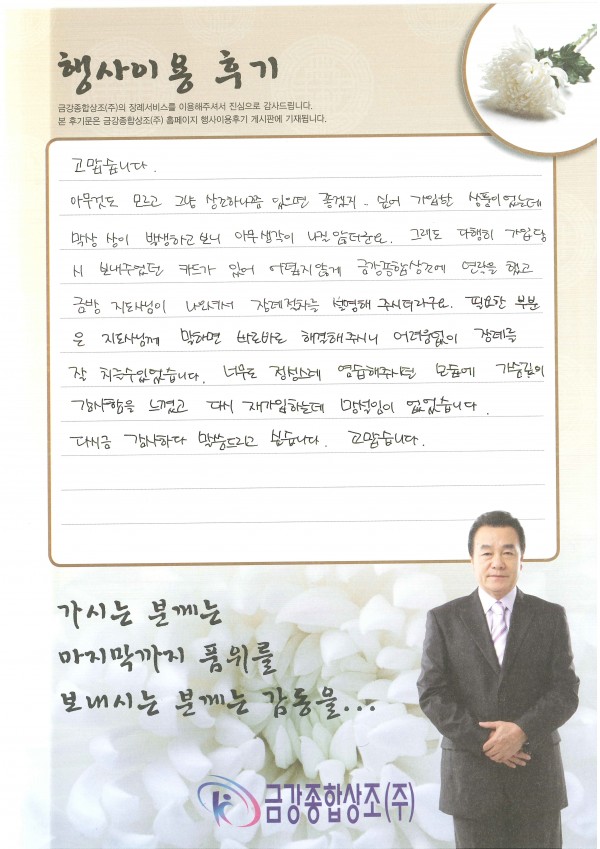 행사이용 후기
금강종합상조(주)의 장례서비스를 이용해주셔서 진심으로 감사드립니다.
본 후기문은 금강종합상조(주) 홈페이지 행사이용후기 게시판에 기재됩니다.
고맙습니다.
아무것도 모르고 그냥 상조하나쯤 있으면 좋겠지 - 싶어 가입한 상품이었는데
막상 상이 발생하고보니 아무생각이 나질 않더군요. 그래도 다행히 가입당
시 보내주었던 카드가 있어 어렵지않게 금강종합상조에 연락을 했고
금방 지도사님이 나와셔서 장례절차를 설명해 주시더라구요. 필요한 부분
은 지도사님께 말하면 바로바로 해결해주시니 어려움없이 장례를
잘 치를수있었습니다. 너무도 정성스레 염습해주시던 모습에 가슴깊이
감사함을 느꼈고 다시 재가입하는데 망설임이 없었습니다.
다시금 감사하다 말씀드리고 싶습니다. 고맙습니다.
가시는 분께는
마지막까지 품위를
보내시는 분께는 감동을...
금강종합상조(주)